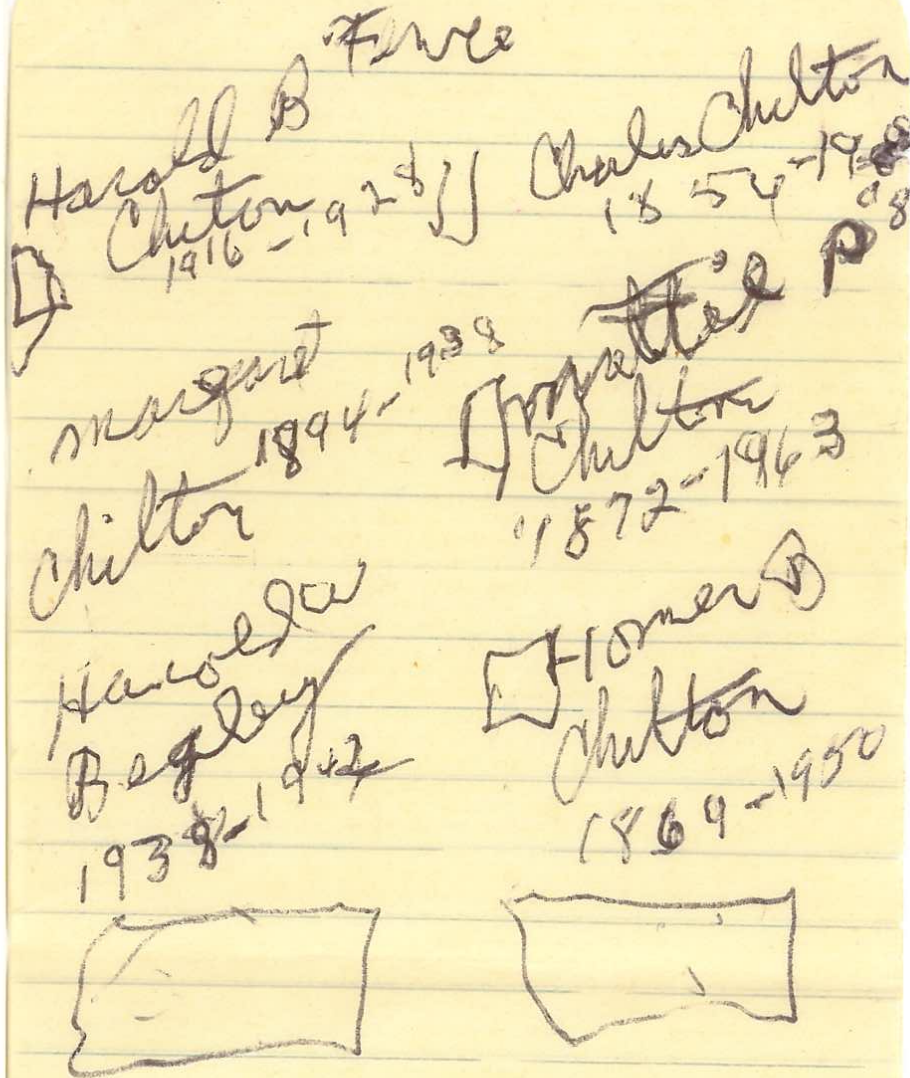 Fence
Harold B
Chilton
1916-1928
Charles Chilton
1854-19
08
Margaret
Chilton 1894-1938
Mattie P
Chilton
1872-1963
Harold W
Begley
1938-1942
Homer B
Chilton
1869-1950